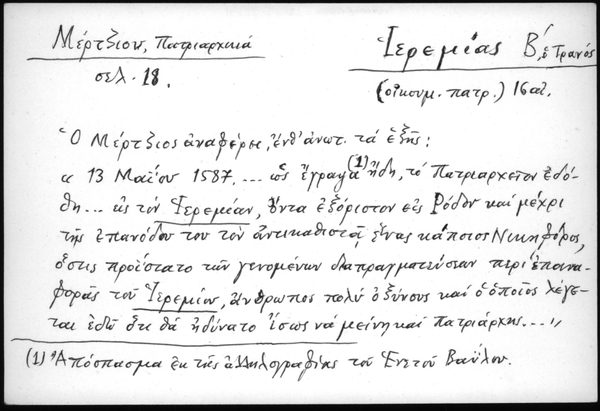 Μέρτζιου, Πατριαρχικά
σελ. 18.
Ἱερεμίας Β΄, ὁ Τρανός
(οἰκουμ. πατρ.) 16 αἰ.
Ὁ Μέρτζιος ἀναφέρει, ἔνθ' ἀνωτ. τά ἑξῆς:
« 13 Μαΐου 1587. ... ὡς ἔγραψα (1) ἤδη, τό Πατριαρχεῖον ἐδό-
θη ... εἰς τόν Ἱερεμίαν, ὄντα ἐξόριστον εἰς Ρόδον καί μέχρι
τῆς ἐπανόδου του τόν ἀντικαθιστᾷ ἕνας κάποιος Νικηφόρος,
ὅστις προΐστατο τῶν γενομένων διαπραγματεύσεων περί ἐπανα-
φορᾶς τοῦ Ἱερεμίου, ἄνθρωπος πολύ ὀξύνους καί ὁ ὁποῖος λέγε-
ται ἐδῶ ὅτι θά ἠδύνατο ἴσως νά μείνῃ καί πατριάρχης ... »
(1) Ἀπόσπασμα ἐκ τῆς ἀλληλογραφίας τοῦ Ἑνετοῦ Βαΐλου.